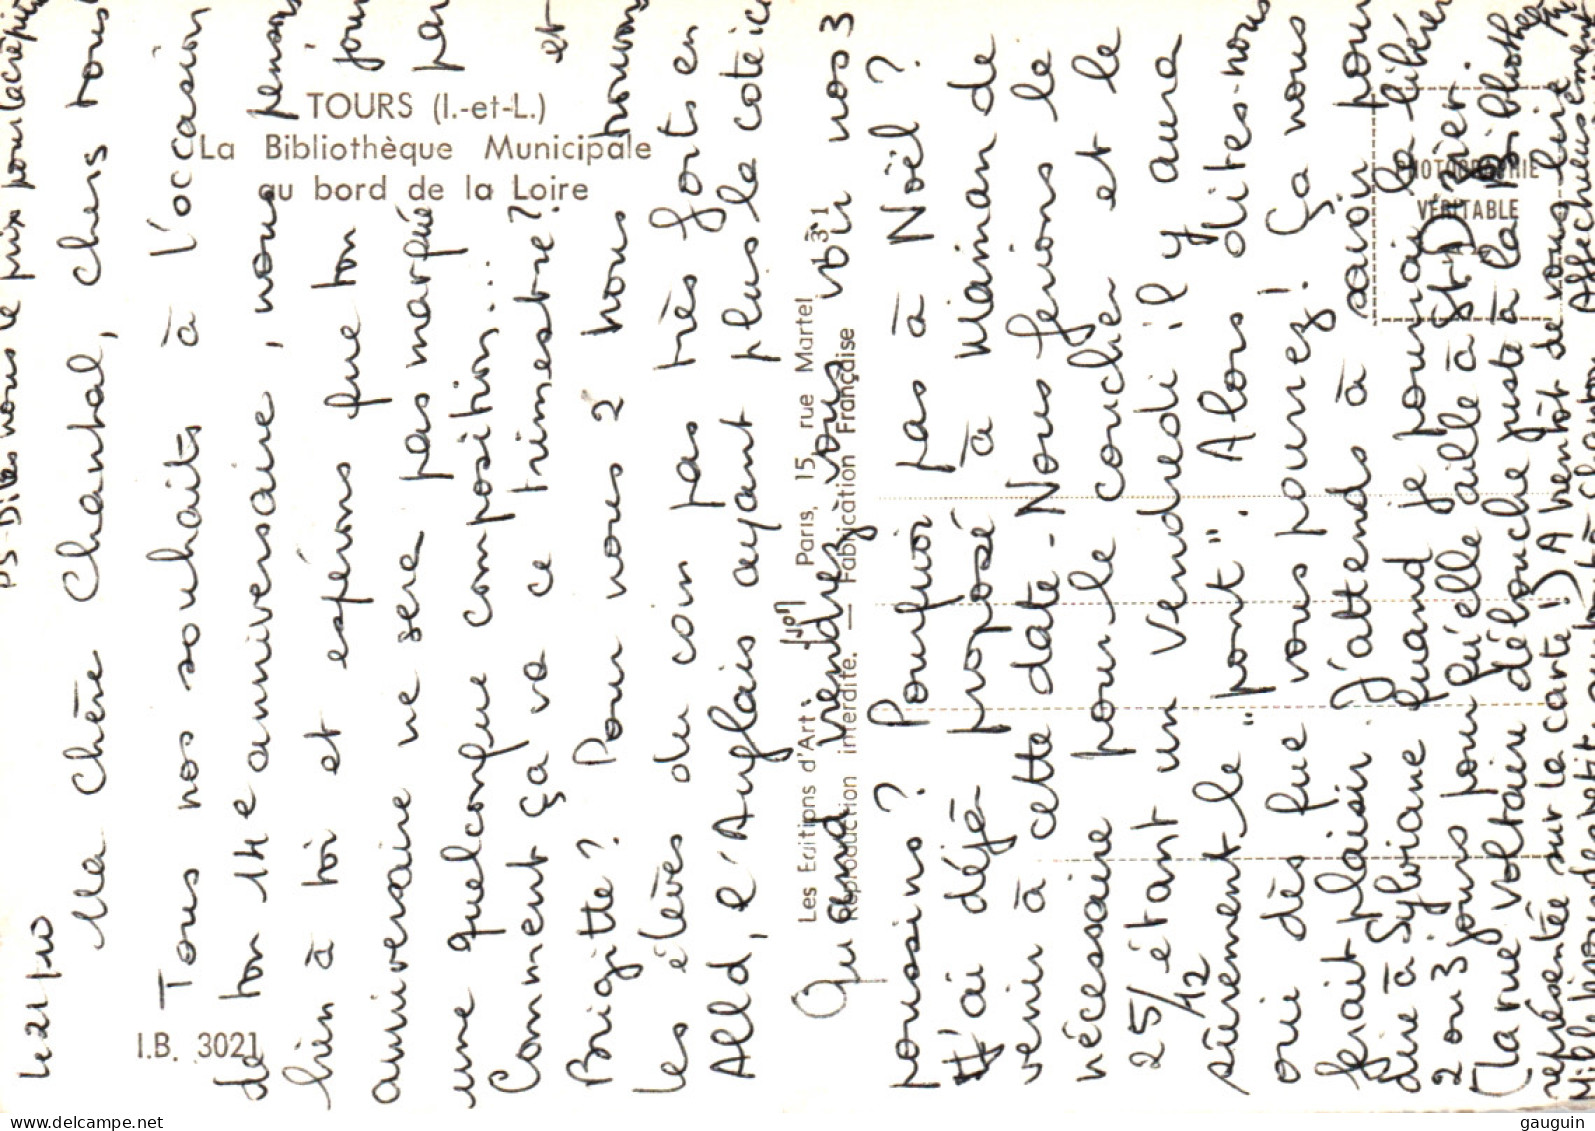 TOURS (I.-et-L.)
La Bibliothèque Municipale
au bord de la Loire
I.B. 3021
Les Editions d'Art Paris, 15, rue Martel
Reproduction interdite. — Fabrication Française
PHOTOGRAPHIE
VÉRITABLE
le 21/10
Ma chère Chantal, chers tous
Tous nos souhaits à l'occasion
de ton 14e anniversaire, nous pensons
bien à toi et espérons que ton jour
anniversaire ne sera pas marqué par
une quelconque composition...
Comment ça va ce trimestre? et
Brigitte? Pour nous 2 nous trouvons
les élèves du coin pas très forts en
Alld, l'Anglais ayant plus la cote ici
Quand viendrez vous voir nos 3
poussins? Pourquoi pas à Noël?
J'ai déjà proposé à Maman de
venir à cette date - Nous ferions le
nécessaire pour le coucher et le
25/12 étant un vendredi il y aura
sûrement le "pont". Alors dites-nous
oui dès que vous pourrez! Ça nous
ferait plaisir. J'attends à savoir pour
dire à Sylviane quand je pourrai la libérer
2 ou 3 jours pour qu'elle aille à St Dizier.
(la rue Voltaire débouche juste à la Bibliothèque
représentée sur la carte!) A bientôt de vous lire
Mille bisous des petits à Chantal Affectueusement
PS - Dites nous le prix pour la crêpière